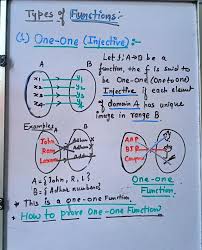 Types of Functions:-
(1) One-One (Injective) :-
A B
Let f: A→B be a
function, the f is said to
be One-One (One to one)
Injective if each element
of domain A has unique
image in range B.
x1 y1
x2 y2
x3 y3
x4
Examples
A B
John
Ram
Adhar 1
Adhar 2
AAP
BJP
Congress
A = {John, R, L}
B = {Adhar numbers}
One-One
Function.
* This is a one-one Function.
* How to prove One-One Function?